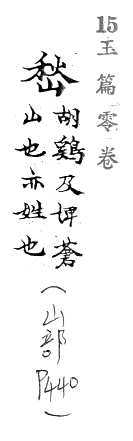 15玉篇零卷
嵆
胡鷄反埤蒼
山也亦姓也
(山部 P440)